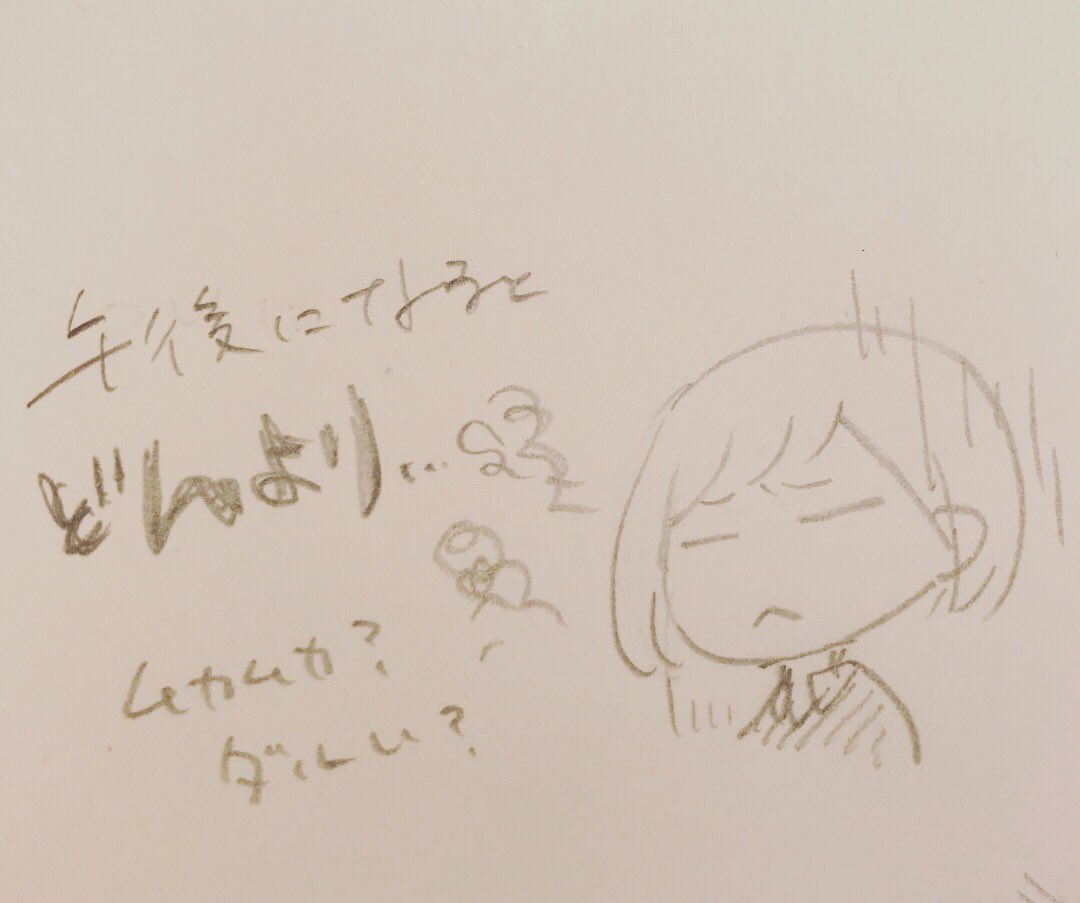 午後になると
どんより...
ムカムカ?
ダルい?